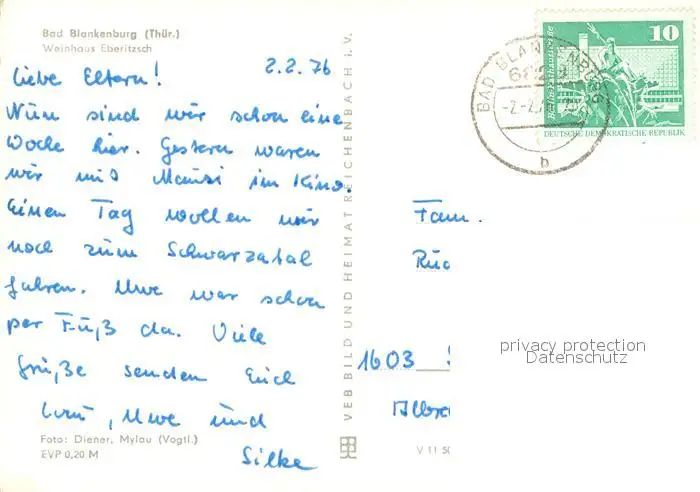 Bad Blankenburg (Thür.)
Weinhaus Eberitzsch
2.2.76
Liebe Eltern!
Nun sind wir schon eine
Woche hier. Gestern waren
wir mit Mausi im Kino.
Einen Tag wollen wir
noch zum Schwarzatal
fahren. Uwe war schon
per Fuß da. Viele
Grüße senden Euch
, Uwe und
Silke
Foto: Diener, Mylau (Vogtl.)
EVP 0,20 M
VEB BILD UND HEIMAT REICHENBACH i. V.
V 11 50
10
DEUTSCHE DEMOKRATISCHE REPUBLIK
BAD BLANKENBURG
b
Fam.
1603
privacy protection
Datenschutz